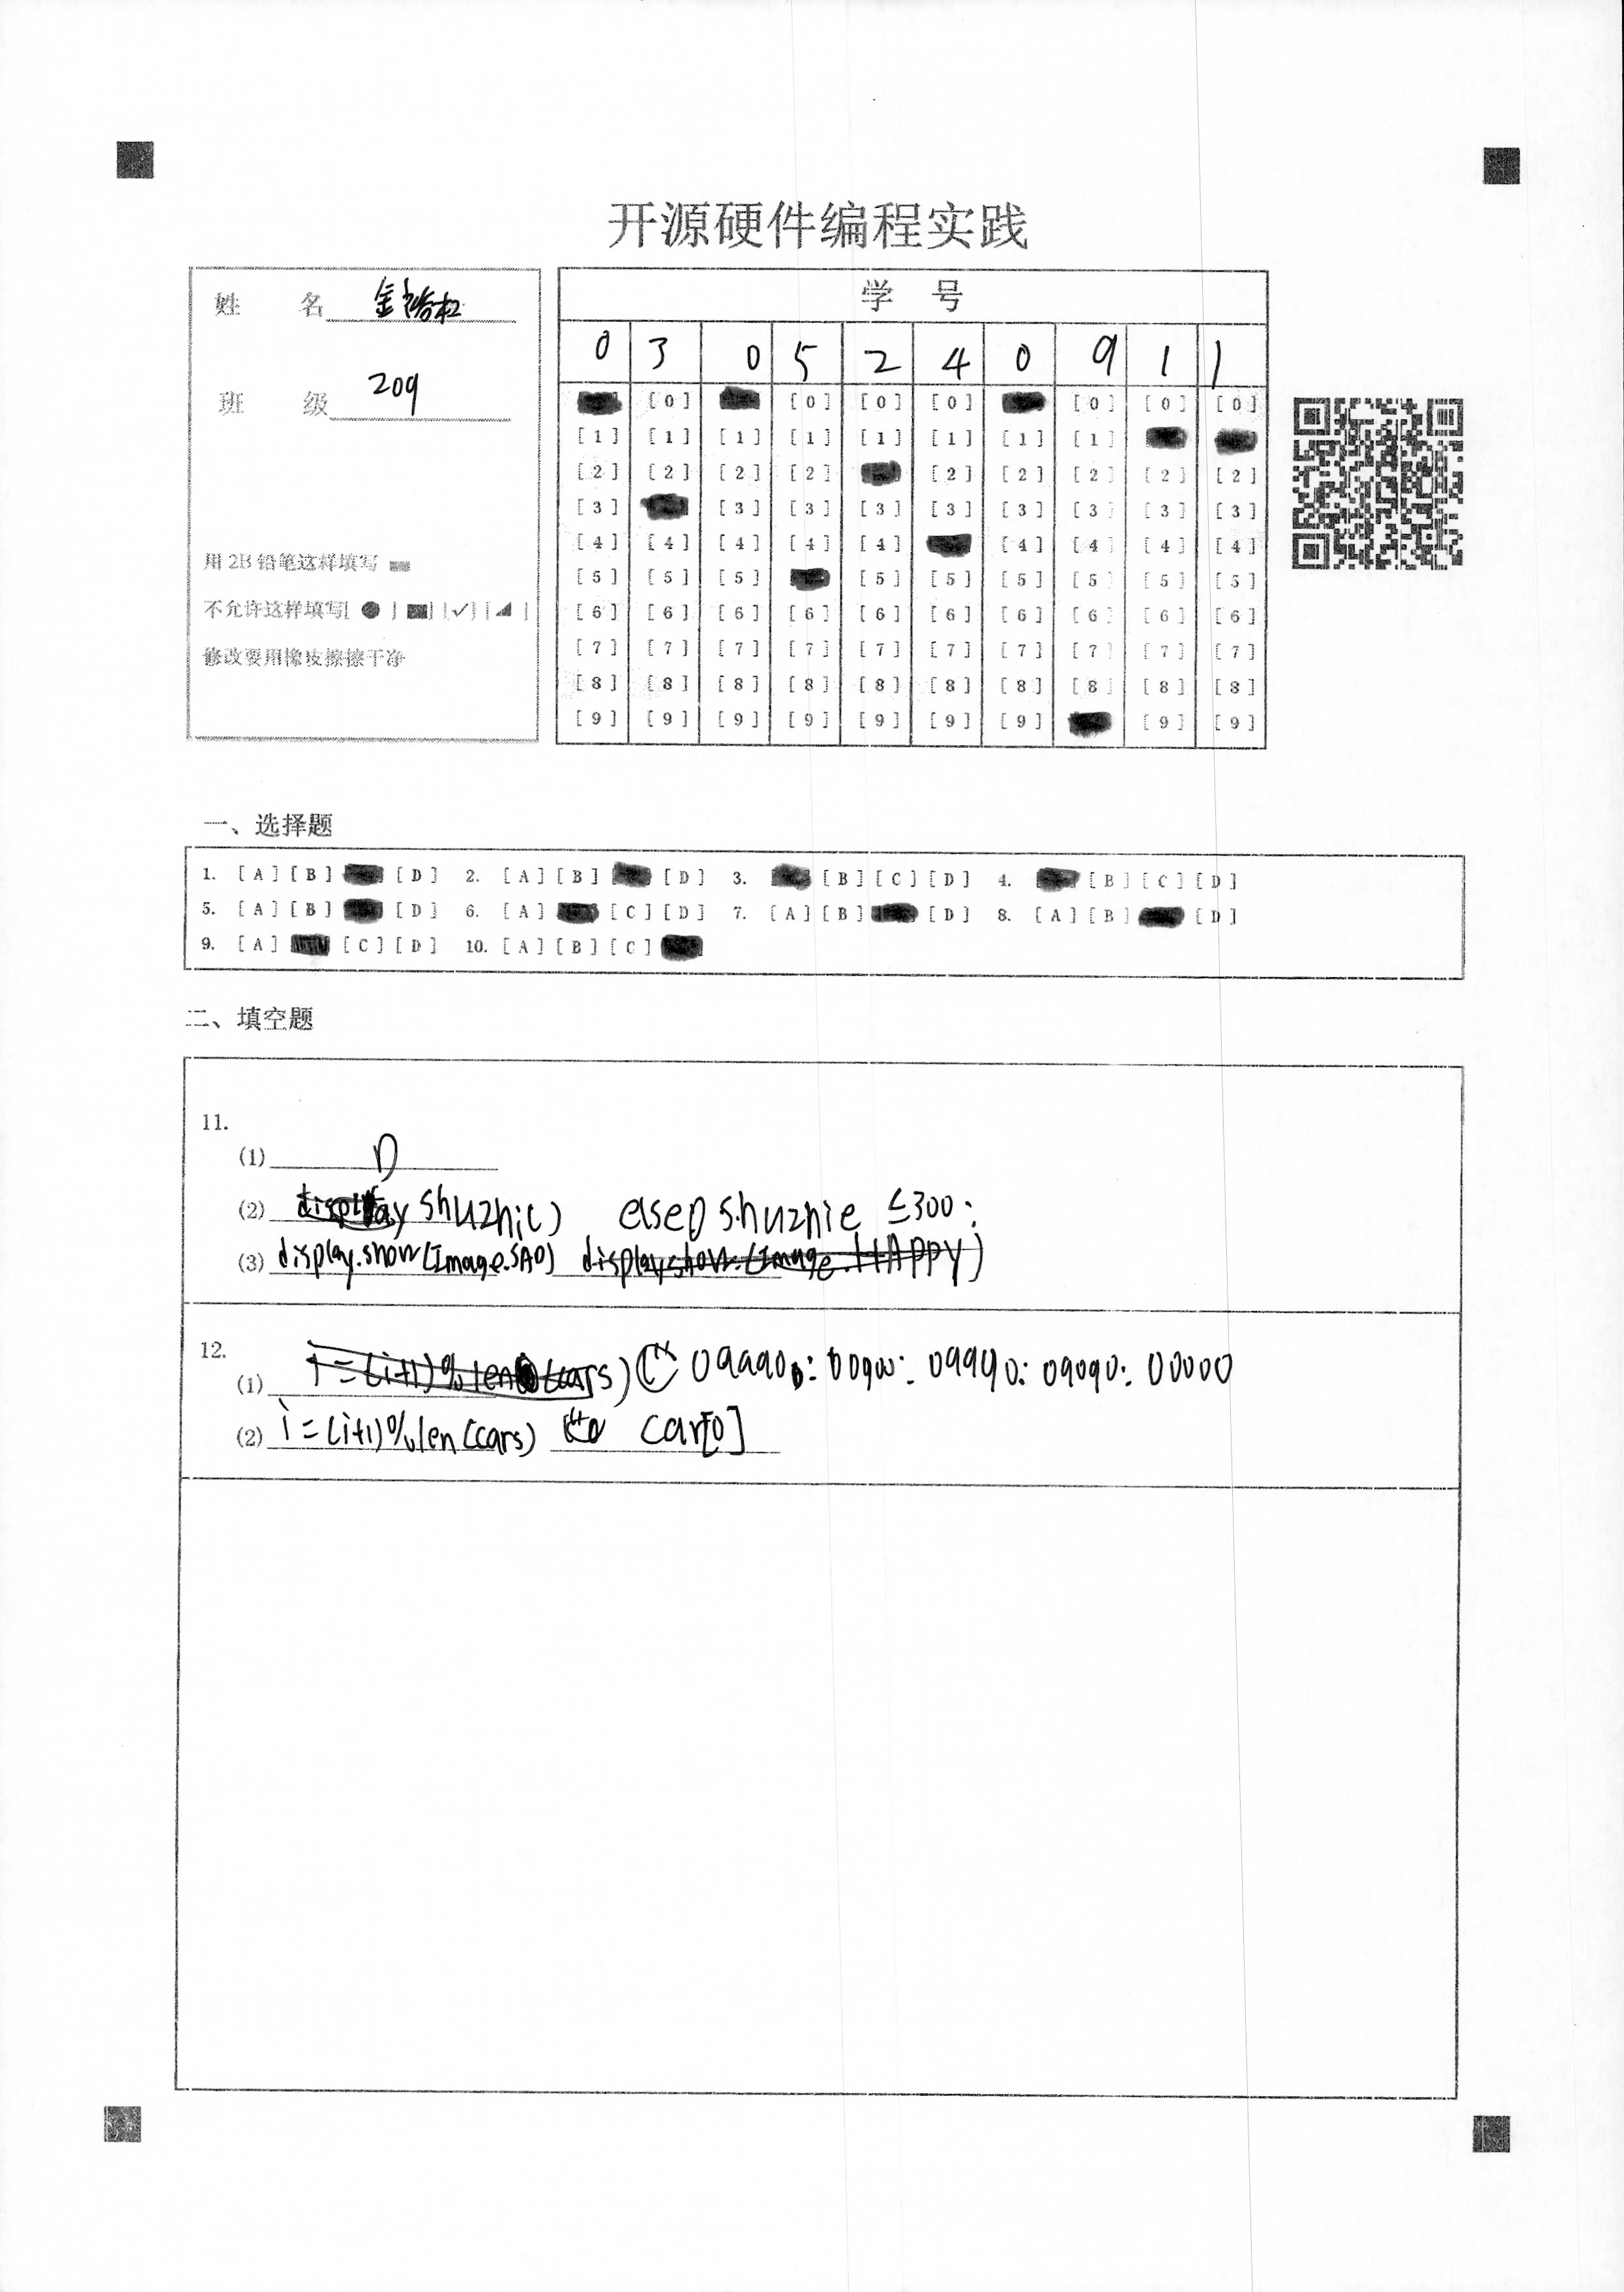 开源硬件编程实践
姓 名 金
班 级 209
用2B铅笔这样填写
不允许这样填写[ ● ] [■] [✓] [◢ ]
修改要用橡皮擦擦干净
学 号
0 3 0 5 2 4 0 9 1 1
[0] [0] [0] [0] [0] [0]
[1] [1] [1] [1] [1] [1] [1] [1]
[2] [2] [2] [2] [2] [2] [2] [2] [2]
[3] [3] [3] [3] [3] [3] [3] [3] [3]
[4] [4] [4] [4] [4] [4] [4] [4] [4]
[5] [5] [5] [5] [5] [5] [5] [5] [5]
[6] [6] [6] [6] [6] [6] [6] [6] [6] [6]
[7] [7] [7] [7] [7] [7] [7] [7] [7] [7]
[8] [8] [8] [8] [8] [8] [8] [8] [8] [8]
[9] [9] [9] [9] [9] [9] [9] [9] [9]
一、选择题
1. [A] [B] [D] 2. [A] [B] [D] 3. [B] [C] [D] 4. [B] [C] [D]
5. [A] [B] [D] 6. [A] [C] [D] 7. [A] [B] [D] 8. [A] [B] [D]
9. [A] [C] [D] 10. [A] [B] [C]
二、填空题
11.
(1) D
(2) shuzhi() shuzhie ≤300:
(3) display.show(Image.SAD) display.show.(Image.HAPPY)
12.
(1) i=(i+1)%len(cars) 00000
(2) i=(i+1)%len(cars) car[0]